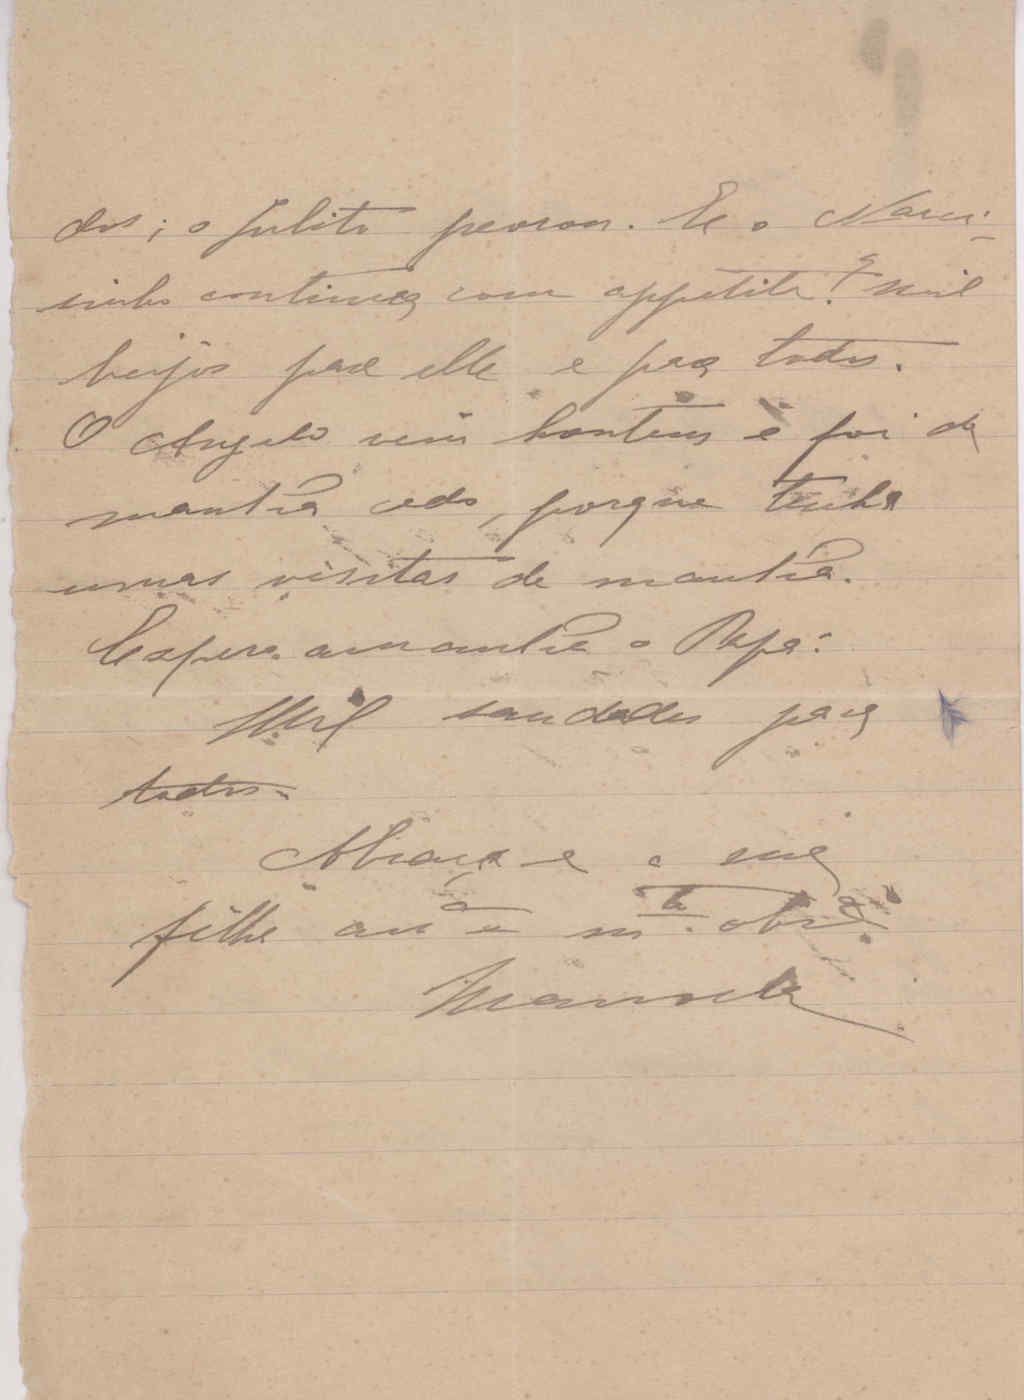 dos; o Julito peorou. Ee o Narci-
sinho continua com appetite? Mil
beijos para elle e para todos.
O Angelo veiu hontem e foi de
manhã cedo, porque tinha
umas visitas de manhã.
Espero amanhã o Papá.
Mil saudades para
todos.
Abraça-a a sua
filha am.ª e m.to obr.da
Manoela